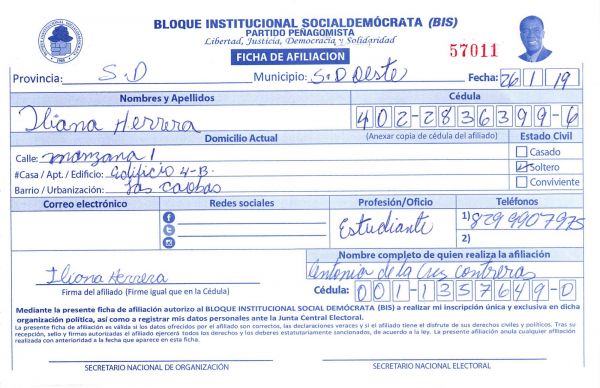 BLOQUE INSTITUCIONAL SOCIALDEMÓCRATA (BIS)
PARTIDO PEÑAGOMISTA
Libertad, Justicia, Democracia y Solidaridad
FICHA DE AFILIACION
57011
Provincia: S.D Municipio: S.D Oeste Fecha: 26/1/19
Nombres y Apellidos
Iliana Herrera
Cédula
402-2836399-6
Domicilio Actual
(Anexar copia de cédula del afiliado)
Estado Civil
Calle: manzana 1
#Casa / Apt. / Edificio: Edificio 4-B.
Barrio / Urbanización: Las Caobas
Casado
Soltero
Conviviente
Correo electrónico
Redes sociales
Profesión/Oficio
Estudiante
Teléfonos
1) 829 9907975
2)
Nombre completo de quien realiza la afiliación
Antonia de la Cruz Contreras
Cédula: 001-1357649-0
Iliana Herrera
Firma del afiliado (Firme igual que en la Cédula)
Mediante la presente ficha de afiliación autorizo al BLOQUE INSTITUCIONAL SOCIAL DEMÓCRATA (BIS) a realizar mi inscripción única y exclusiva en dicha
organización política, así como a registrar mis datos personales ante la Junta Central Electoral.
La presente ficha de afiliación es válida si los datos ofrecidos por el afiliado son correctos, las declaraciones veraces y si el afiliado tiene el disfrute de sus derechos civiles y políticos. Tras su
recepción, sello y firmas autorizadas el afiliado ejercerá todos los derechos y los deberes estatutariamente sancionados, de acuerdo a la ley. La presente afiliación anula cualquier afiliación
realizada con anterioridad a la fecha que aparece en esta ficha.
SECRETARIO NACIONAL DE ORGANIZACIÓN
SECRETARIO NACIONAL ELECTORAL